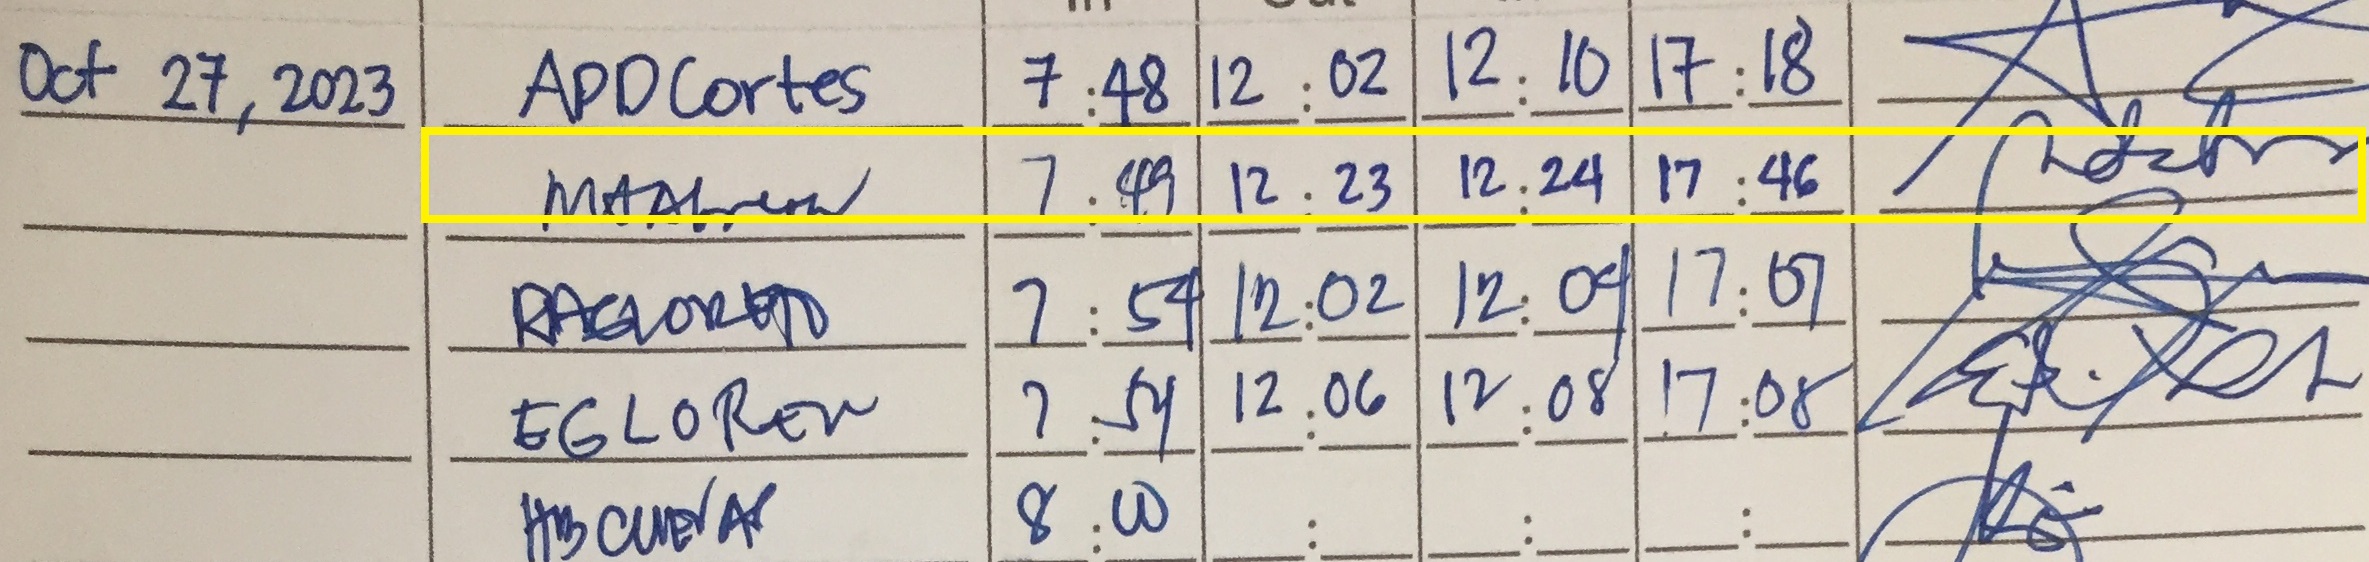 Oct 27, 2023 APDCortes 7:48 12:02 12:10 17:18
7:49 12:23 12:24 17:46
7:54 12:02 12:04 17:07
EGLOREN 7:54 12:06 12:08 17:08
HBCUEVAS 8:00 : : :